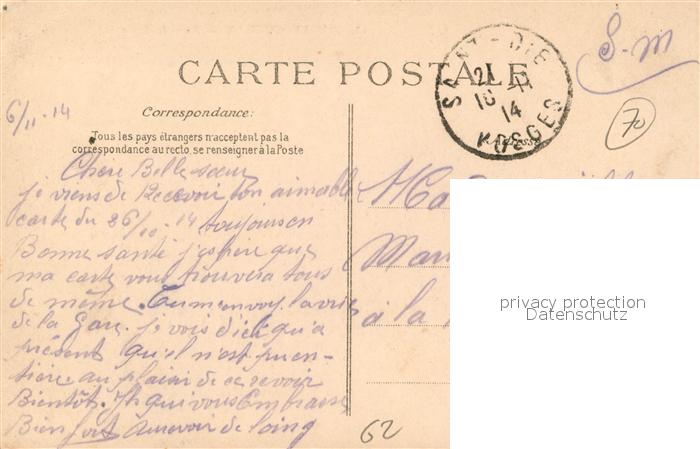 S-M
CARTE POSTALE
SAINT-DIÉ
21 11
14
VOSGES
70
6/11-14
Correspondance:
Tous les pays étrangers n'acceptent pas la
correspondance au recto, se renseigner à la Poste
Adresse
Chère Belle sœur
je viens de Recevoir ton aimable
carte du 26/10-14 toujours en
Bonne santé j'espère que
ma carte vous trouvera tous
de même. Tu m'envoy la vue
de la Gare. je vois d'ici qu'a
présent qu'il n'est plus en-
tière. au plaisir de ce revoir
Bientôt. Jh qui vous Embrasse
Bien fort Aurevoir de loing
Ma
à la
62
privacy protection
Datenschutz